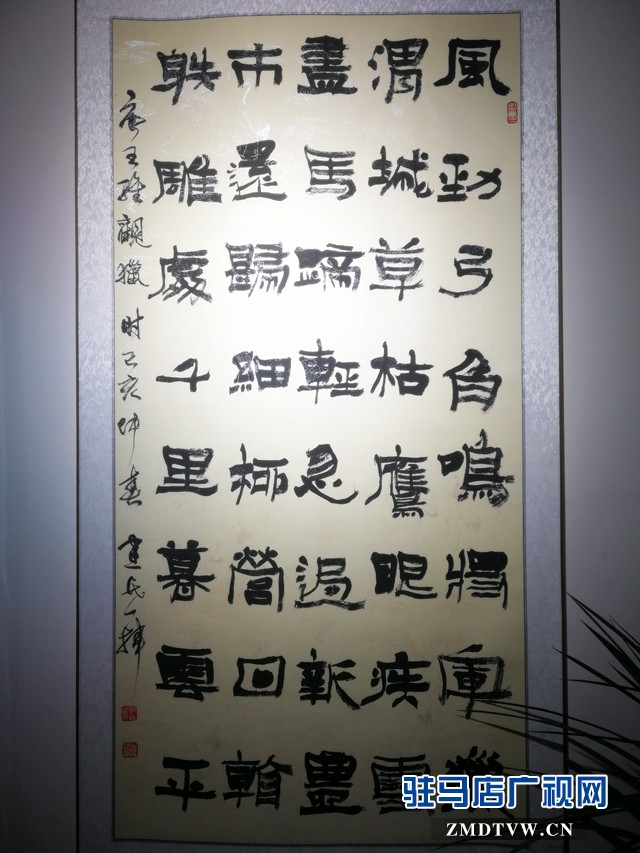 風勁弓角鳴將軍獵
渭城草枯鷹眼疾雪
盡馬蹄輕急過新豊
市還歸細柳營回看
䠶雕處千里暮雲平
唐王維觀獵 時己亥仲春 建民一揮
驻马店广视网
ZMDTVW.CN